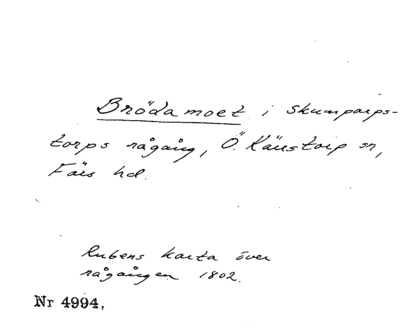 Brödamoet i Skumparps-
torps rågång, Ö. Kärstorp sn,
Färs hd.
Rubens karta över
rågången 1802.
Nr 4994.